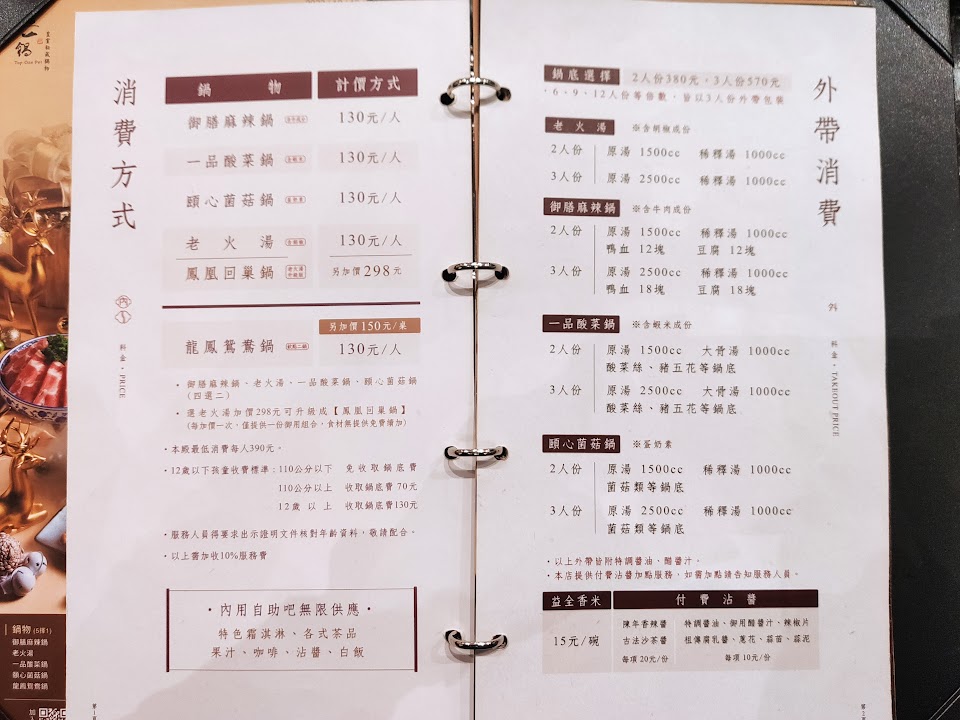 鍋
Top One Pot
鍋物 (5擇1)
御膳麻辣鍋
老火湯
一品酸菜鍋
頤心菌菇鍋
龍鳳鴛鴦鍋
加入
消費方式
料金・PRICE
鍋物 計價方式
御膳麻辣鍋 130元/人
一品酸菜鍋 130元/人
頤心菌菇鍋 130元/人
老火湯 130元/人
鳳凰回巢鍋 另加價298元
另加價150元/桌
龍鳳鴛鴦鍋 130元/人
・御膳麻辣鍋、老火湯、一品酸菜鍋、頤心菌菇鍋
(四選二)
・選老火湯加價298元可升級成【鳳凰回巢鍋】
(每加價一次,僅提供一份御用組合,食材無提供免費續加)
・本殿最低消費每人390元。
・12歲以下孩童收費標準:110公分以下 免收取鍋底費
110公分以上 收取鍋底費70元
12歲以上 收取鍋底費130元
・服務人員得要求出示證明文件核對年齡資料,敬請配合。
・以上需加收10%服務費
・內用自助吧無限供應・
特色霜淇淋、各式茶品
果汁、咖啡、沾醬、白飯
外帶消費
外
料金・TAKEOUT PRICE
鍋底選擇 2人份380元・3人份570元
・6、9、12人份等倍數,皆以3人份外帶包裝
老火湯 ※含胡椒成份
2人份 原湯 1500cc 稀釋湯 1000cc
3人份 原湯 2500cc 稀釋湯 1000cc
御膳麻辣鍋 ※含牛肉成份
2人份 原湯 1500cc 稀釋湯 1000cc
鴨血 12塊 豆腐 12塊
3人份 原湯 2500cc 稀釋湯 1000cc
鴨血 18塊 豆腐 18塊
一品酸菜鍋 ※含蝦米成份
2人份 原湯 1500cc 大骨湯 1000cc
酸菜絲、豬五花等鍋底
3人份 原湯 2500cc 大骨湯 1000cc
酸菜絲、豬五花等鍋底
頤心菌菇鍋 ※蛋奶素
2人份 原湯 1500cc 稀釋湯 1000cc
菌菇類等鍋底
3人份 原湯 2500cc 稀釋湯 1000cc
菌菇類等鍋底
・以上外帶皆附特調醬油、醋醬汁。
・本店提供付費沾醬加點服務,如需加點請告知服務人員。
益全香米 付費沾醬
15元/碗
陳年香辣醬
古法沙茶醬
每項 20元/份
特調醬油、御用醋醬汁、辣椒片
祖傳腐乳醬、蔥花、蒜苗、蒜泥
每項 10元/份